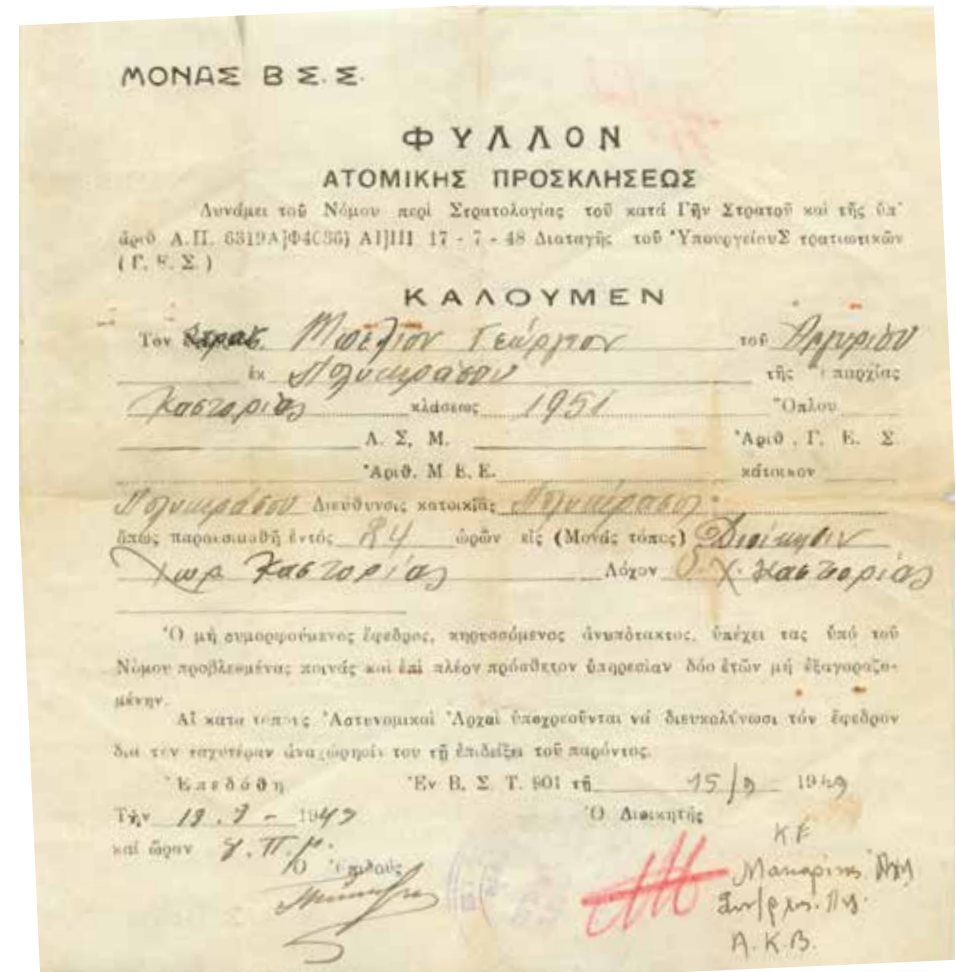 ΜΟΝΑΣ Β Σ. Σ.
ΦΥΛΛΟΝ
ΑΤΟΜΙΚΗΣ ΠΡΟΣΚΛΗΣΕΩΣ
Δυνάμει τοῦ Νόμου περί Στρατολογίας τοῦ κατά Γῆν Στρατοῦ καί τῆς ὑπ'
ἀριθ Α.Π. 17 - 7 - 48 Διαταγῆς τοῦ ῾ΥπουργείουΣ τρατιωτικῶν
( Γ. Ε. Σ )
ΚΑΛΟΥΜΕΝ
Τόν Στρατ. Μπέλιον Γεώργιον τοῦ Αργυρίου
ἐκ Πολυκεράσου τῆς ἐπαρχίας
Καστορίας κλάσεως 1951 Ὅπλου
Α. Σ, Μ. Ἀριθ. Γ. Ε. Σ.
Ἀριθ. Μ Ε. Ε. κάτοικον
Πολυκεράσου Διεύθυνσις κατοικίας Πολυκέρασον
ὅπως παρουσιασθῆ ἐντός 84 ὡρῶν εἰς (Μονάς τόπος) Διοίκησιν
Χωρ Καστορίας Λόχον Καστορίας
Ὁ μή συμορφούμενος ἔφεδρος, κηρυσσόμενος ἀνυπότακτος, ὑπέχει τας ὑπό τοῦ
Νόμου προβλεπμένας ποινάς καί ἐπί πλέον πρόσθετον ὑπηρεσίαν δύο ἐτῶν μή ἐξαγοραζο-
μένην.
Αἱ κατα τόπους Ἀστυνομικαί Ἀρχαί ὑποχρεοῦνται νά διευκολύνωσι τόν ἔφεδρον
δια τήν ταχυτέραν ἀναχώρησίν του τῇ ἐπιδείξει τοῦ παρόντος.
Ἐπεδόθη Ἐν Β. Σ. Τ. 801 τῇ 15/9 1949
Τήν 19. 9 - 1949 Ὁ Διοικητής
καί ὥραν π.μ. Κ.Ε
Ὁ Ἐπιδούς
Α.Κ.Β.